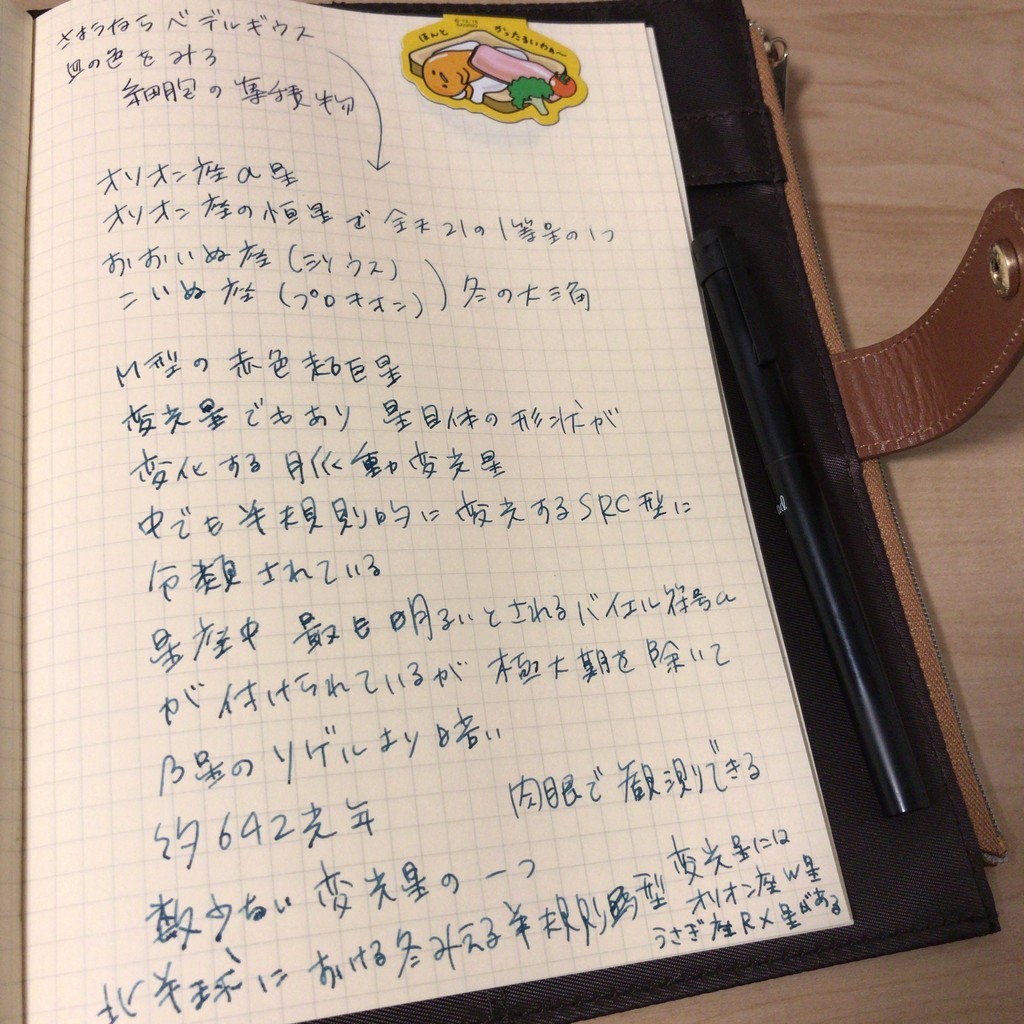 さようなら ベテルギウス
血の色をみる
細胞の集積物
ほんと
かったるいわぁ〜
オリオン座α星
オリオン座の恒星で 全天21の1等星の1つ
おおいぬ座(シリウス)
こいぬ座(プロキオン)) 冬の大三角
M型の赤色超巨星
変光星でもあり 星自体の形状が
変化する 脈動変光星
中でも半規則的に変光するSRC型に
分類されている
星座中 最も明るいとされるバイエル符号α
が付けられているが 極大期を除いて
β星のリゲルより暗い
約642光年
肉眼で観測できる
数少ない変光星の一つ
北半球における冬みえる半規則型 変光星には
オリオン座W星
うさぎ座RX星がある